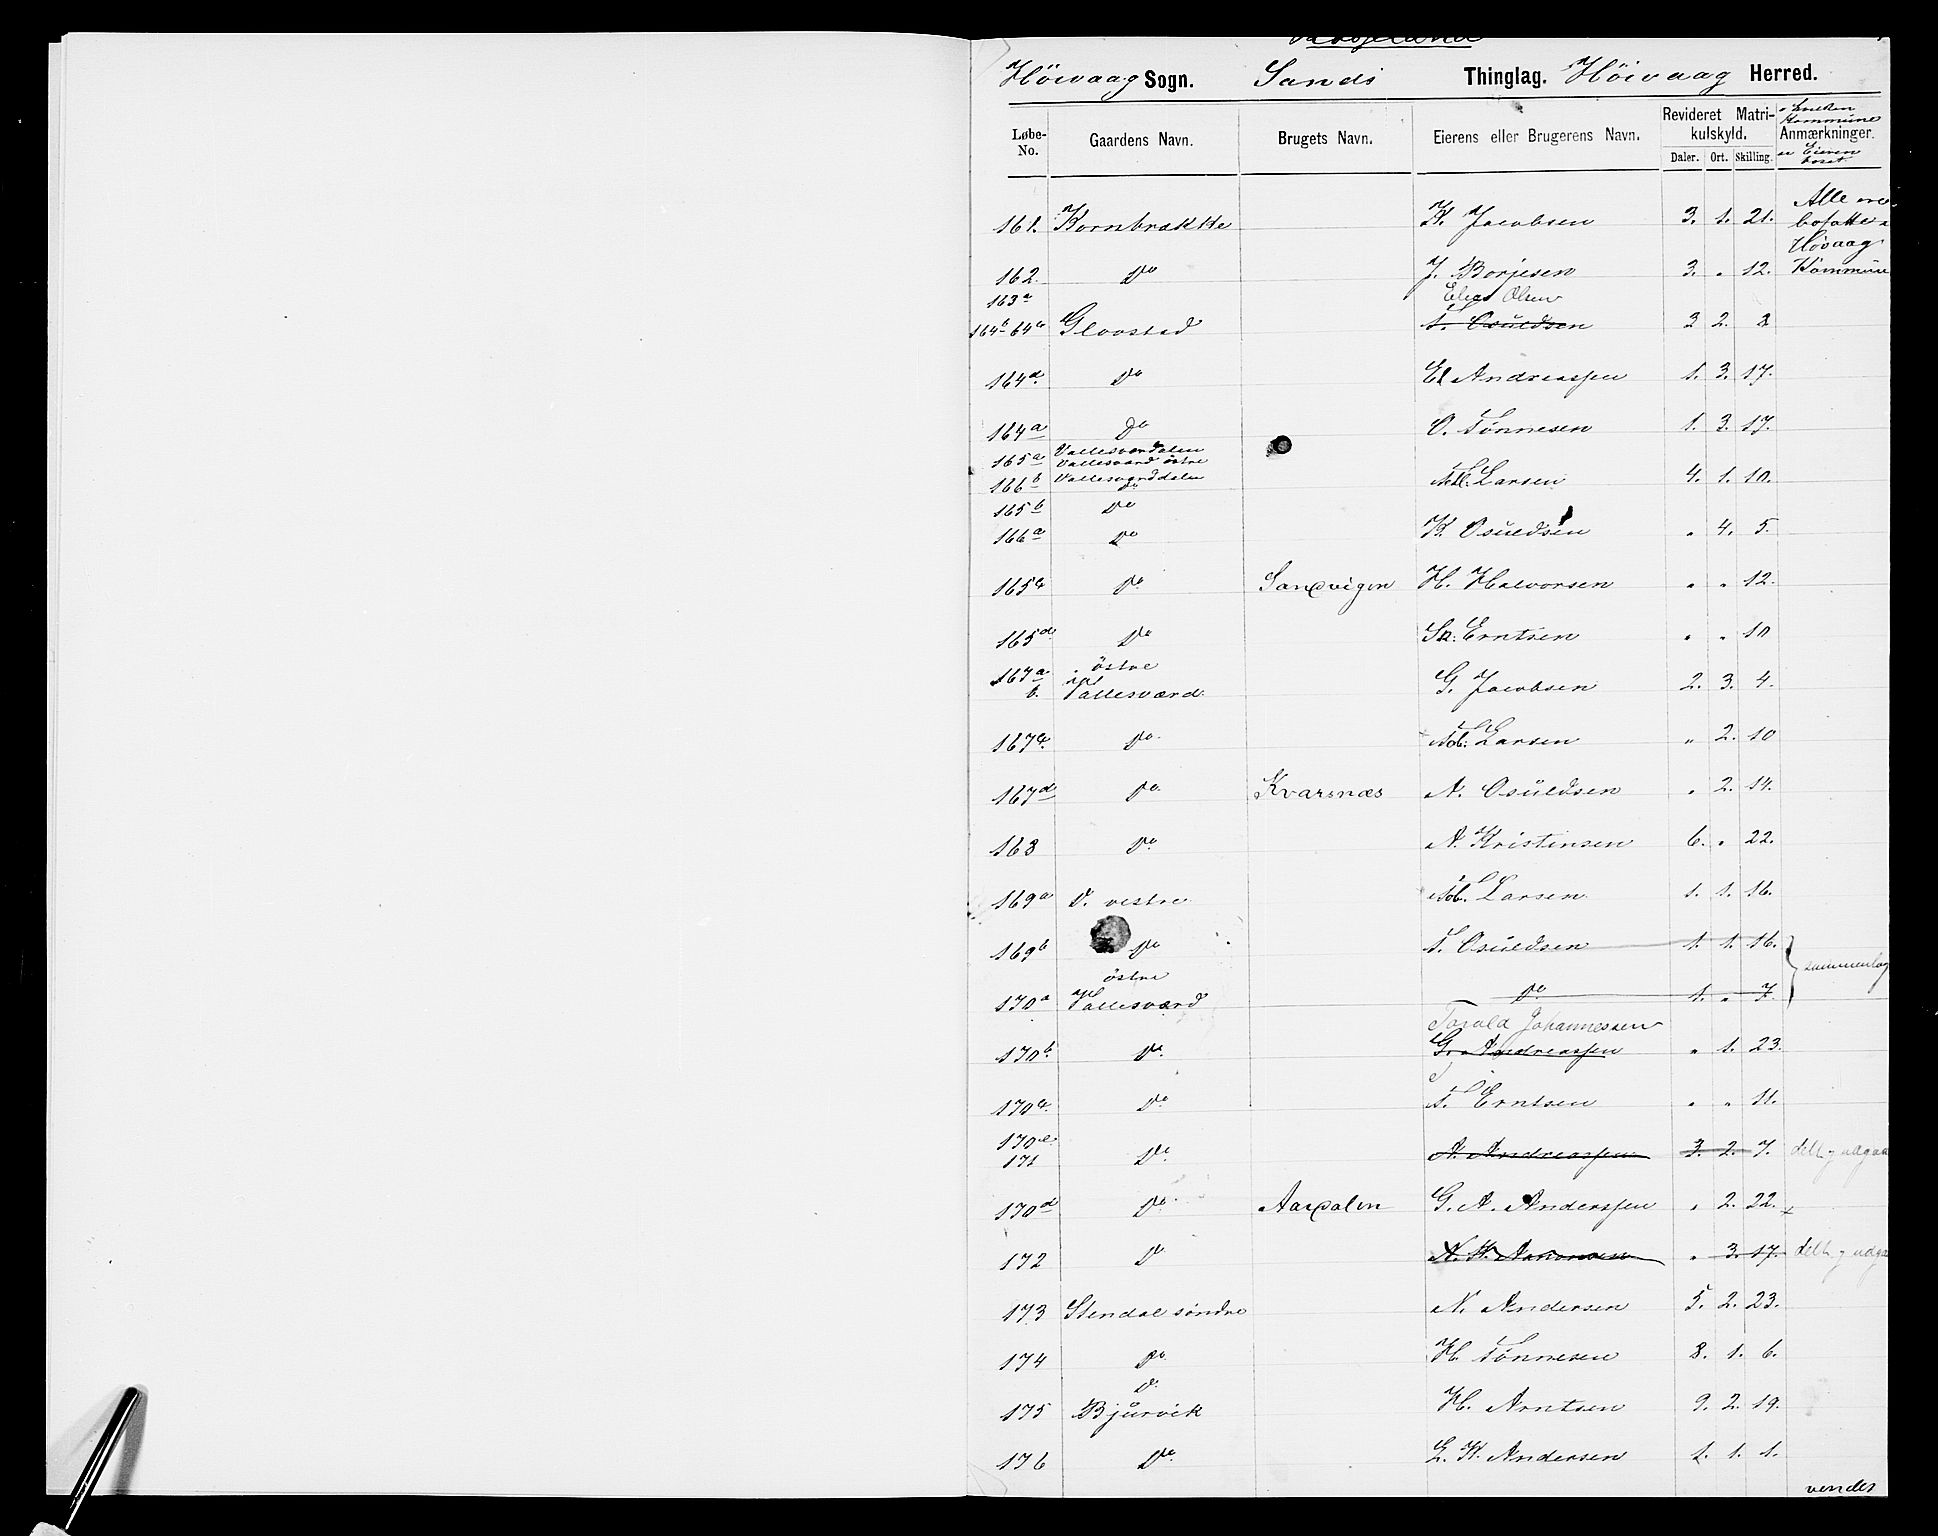 Höivaag Sogn. Sands Thinglag. Höivaag Herred.
Løbe-No. Gaardens Navn. Brugets Navn. Eierens eller Brugerens Navn. Revideret Matrikulskyld. Daler. Ort. Skilling. Anmærkninger.
i hvilken Kommune er Eieren bosat
161. Kornbrække K. Jacobsen 3. 1. 21. Alle ere bosatte i Høvaag Kommune
162. Do J. Borjesen 3. " 12.
163a Elias Olsen
164b 64c Glovstad T. Osuldsen 3 2. 8
164d. Do El Andreassen 1. 3. 17.
164a Do O. Tønnesen 1. 3. 17.
165a Vallesværdalen
Vallesværd östre
166b Vallesværddalen Do Larsen 4. 1. 10.
165b Do
166a Do K. Osuldsen " 4. 5.
165c Do Sandvigen H. Halvorsen " " 12.
165d. Do Erntsen " " 10
167a b. östre Vallesværd. G. Jacobsen 2. 3. 4.
167c. Do. Larsen " 2. 10
167d Do. Kvarsnæs N. Osuldsen " 2. 14.
168 Do. A. Kristensen 6. " 22.
169a D. vestre Larsen 1. 1. 16.
169b Do T. Osuldsen 1. 1. 16. sammenlag
170a östre Vallesværd Do. 1. " 7.
Torald Johannessen
170b. Do. G. Andreassen " 1. 23.
170c. Do. T. Erntsen " " 11.
170e. 171 Do. A. Andreassen 3. 2. 7.
170d Do. Aasdalen G. A. Anderssen " 2. 22.
172 Do " 3. 17.
173 Stendal søndre N. Andersen 5. 2. 23.
174 Do. H. Tønnesen 8. 1. 6.
175 D. Bjürvik H. Arntsen 9. 2. 19.
176 Do. L. K. Andersen 1. 1. 1.
vendes